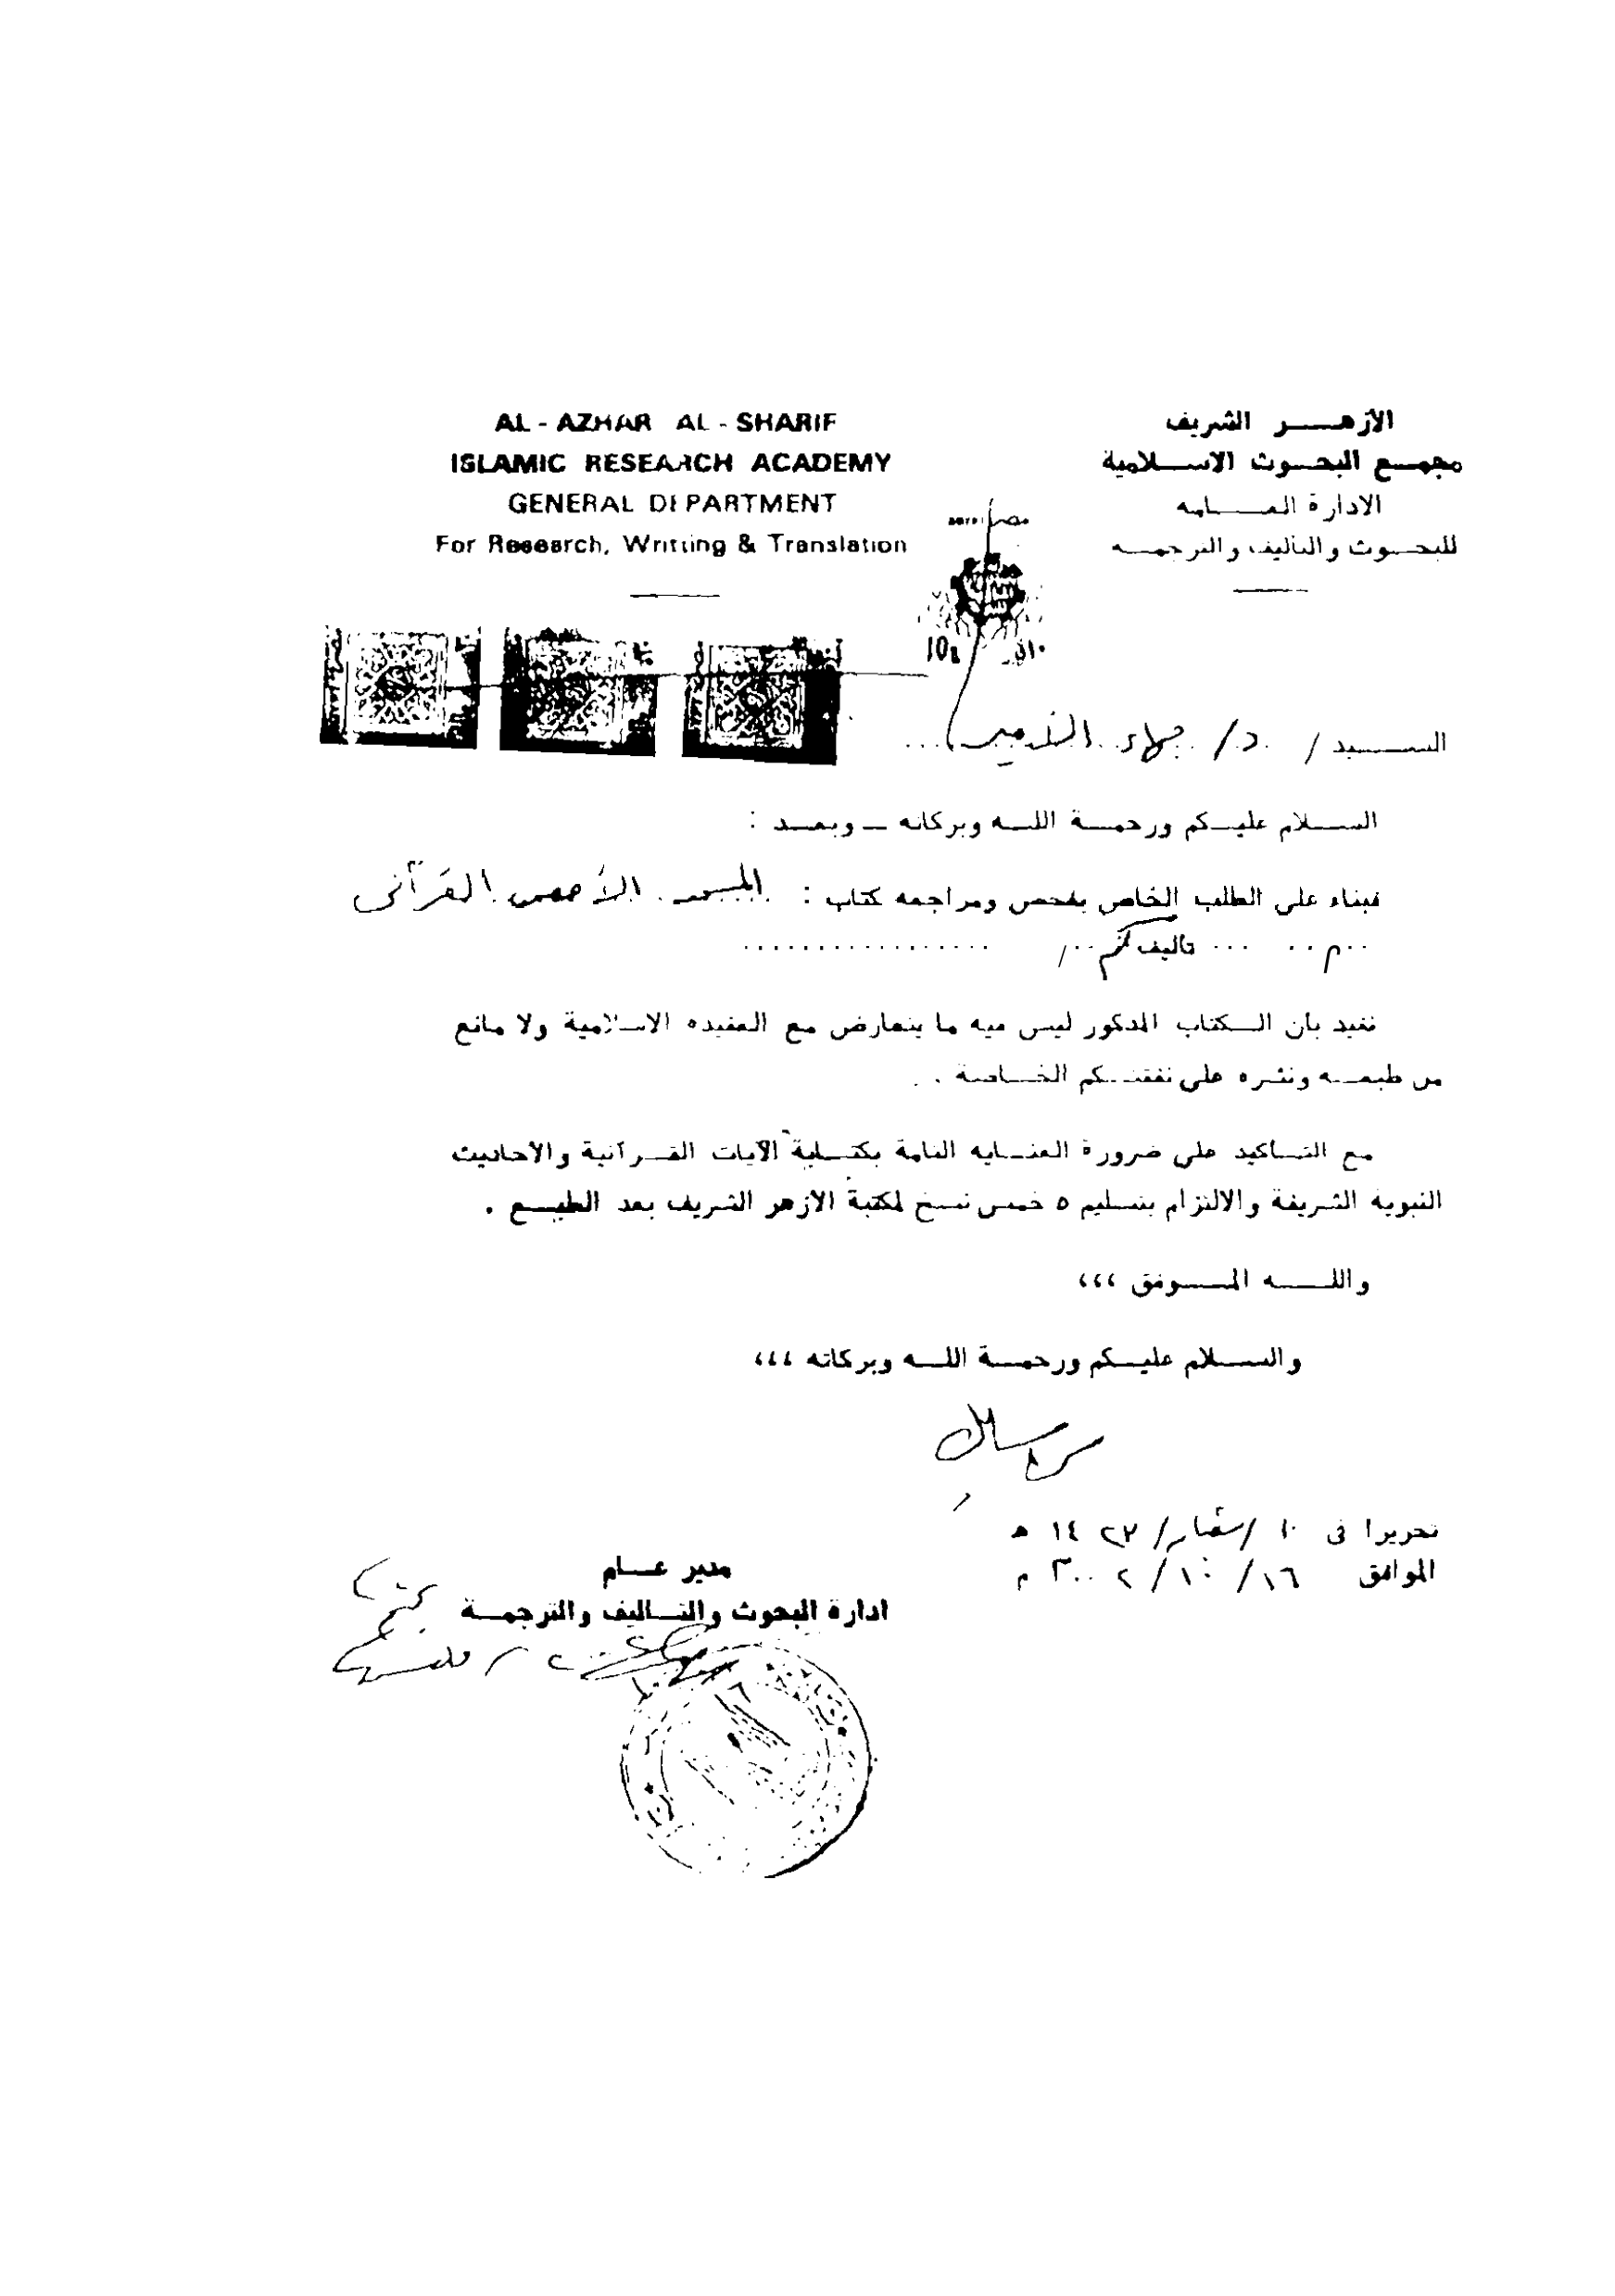 AL - AZHAR AL - SHARIF
ISLAMIC RESEARCH ACADEMY
GENERAL DEPARTMENT
For Research, Writting & Translation
الازهـــر الشريف
مجمـــع البحـــوث الاســـلامية
الادارة العـــــامه
للبحـــوث والتأليف والترجمـــه
مصر
السـيد / د/ بهاء الأمير
الســـلام عليـــكم ورحمـــة اللـــه وبركاته ــ وبعـــد :
فبناء على الطلب الخاص بفحص ومراجعه كتاب : المسجد الأقصى القرآنى
تأليف
نفيد بأن الـــكتاب المذكور ليس فيه ما يتعارض مع العقيده الاسـلامية ولا مانع
من طبعـــه ونشره على نفقتـــكم الخـــاصة .
مع التـــأكيد على ضرورة العنـــايه التامة بكتـــابة الآيات القـــرآنية والاحاديث
النبوية الشريفة والالتزام بتسليم ٥ خمس نسخ لمكتبة الازهر الشريف بعد الطبـــع .
واللـــــه المـــــوفق ،،،
والســـلام عليـــكم ورحمـــة اللـــه وبركاته ،،،
تحريرا فى ١٠ /شعبان/ ١٤٢٣ هـ
الموافق ١٦ /١٠ /٢٠٠٢ م
مدير عـــام
ادارة البحوث والتـــأليف والترجمـــة